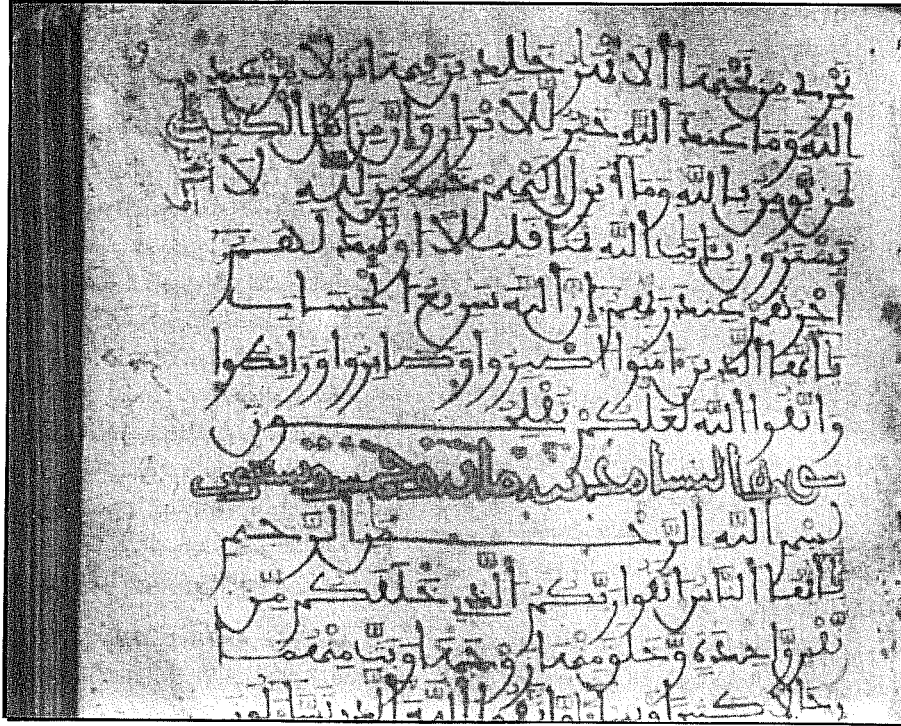 تجري من تحتها الانهر خلدين فيها نزلا من عند
الله وما عند الله خير للابرار وان من اهل الكتب
لمن يومن بالله وما انزل خشعين لله لا
يشترون بايت الله ثمنا قليلا اوليك لهم
اجرهم عند ربهم ان الله سريع الحساب
يايها الذين امنوا اصبروا وصابروا ورابطوا
واتقوا الله لعلكم تفلحون
سورة النسا مدنية
بسم الله الرحمن الرحيم
يايها الناس اتقوا ربكم الذي خلقكم من
نفس وحدة وخلق منها زوجها وبث منهما
رجالا كثيرا ونسا واتقوا الله الذي تسالون